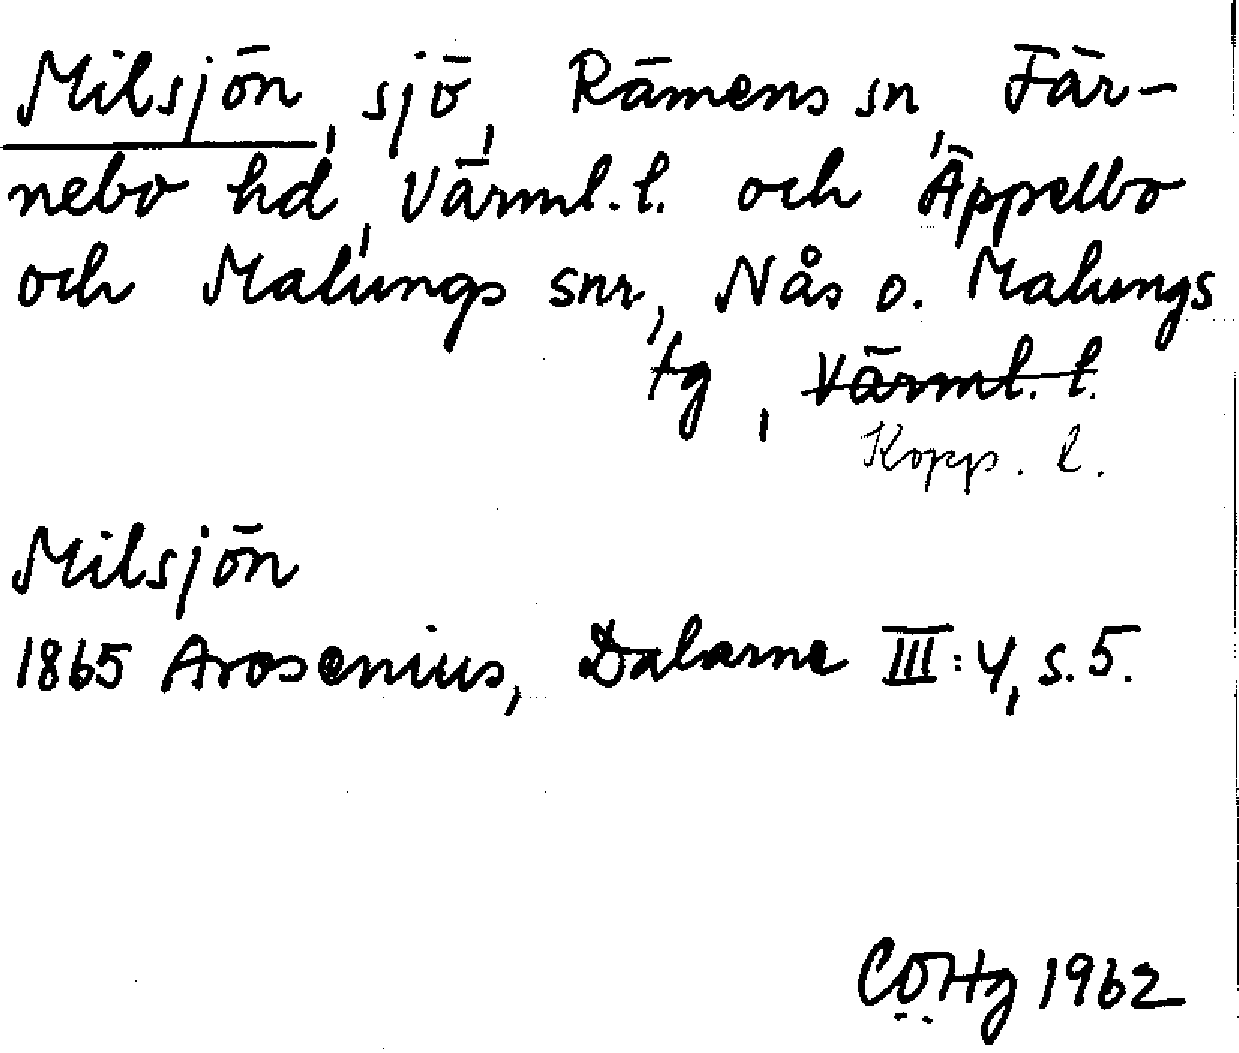 Milsjön, sjö, Rämens sn, Fär-
nebo hd, Värml. l. och Äppelbo
och Malungs snr, Nås o. Malungs
tg, Värml. l.
Kopp. l.
Milsjön
1865 Arosenius, Dalarne III:4, s. 5.
CÖHg 1962